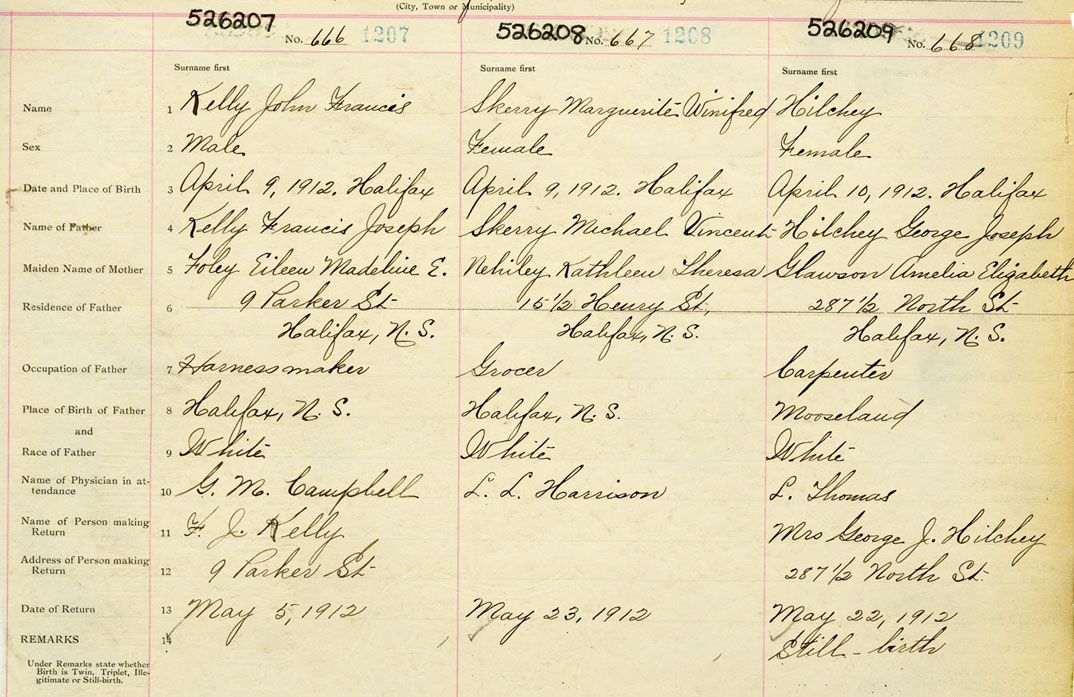 (City, Town or Municipality)
526207 No. 666 1207 526208 No. 667 1208 526209 No. 668 1209
Surname first Surname first Surname first
Name 1 Kelly John Francis Skerry Marguerite Winifred Hilchey
Sex 2 Male Female Female
Date and Place of Birth 3 April 9, 1912. Halifax April 9, 1912. Halifax April 10, 1912. Halifax
Name of Father 4 Kelly Francis Joseph Skerry Michael Vincent Hilchey George Joseph
Maiden Name of Mother 5 Foley Eileen Madeline E. Nehiley Kathleen Theresa Glawson Amelia Elizabeth
Residence of Father 6 9 Parker St 15 1/2 Henry St, 287 1/2 North St
Halifax, N.S. Halifax, N.S. Halifax, N.S.
Occupation of Father 7 Harnessmaker Grocer Carpenter
Place of Birth of Father 8 Halifax, N.S. Halifax, N.S. Mooseland
and
Race of Father 9 White White White
Name of Physician in at-
tendance 10 G. M. Campbell L. L. Harrison L. Thomas
Name of Person making
Return 11 F. J. Kelly Mrs George J. Hilchey
Address of Person making
Return 12 9 Parker St 287 1/2 North St.
Date of Return 13 May 5, 1912 May 23, 1912 May 22, 1912
REMARKS 14 Still-birth
Under Remarks state whether
Birth is Twin, Triplet, Ille-
gitimate or Still-birth.